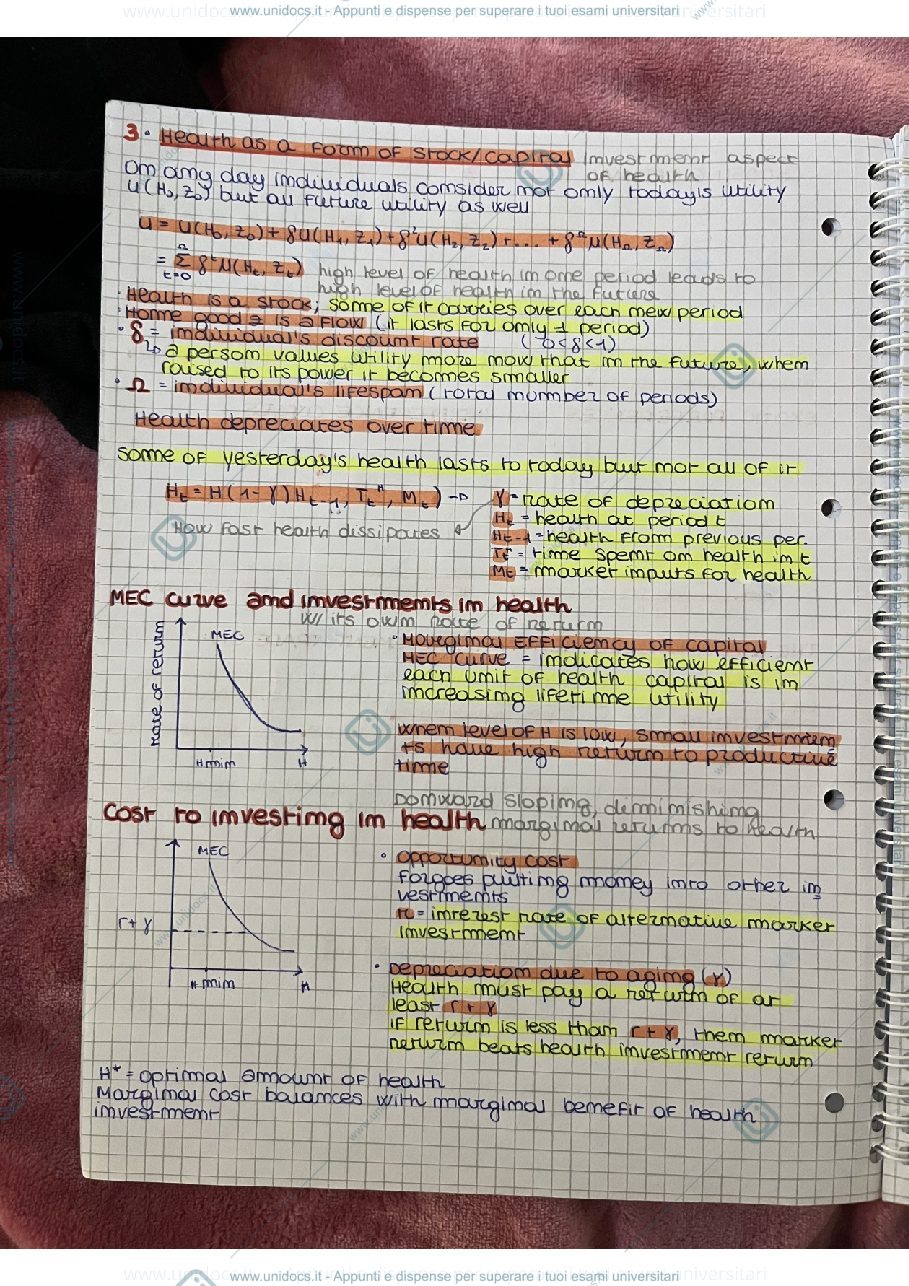 www.unidocs.it - Appunti e dispense per superare i tuoi esami universitari
3. Health as a form of stock/capital investment aspect
of health
On any day individuals consider not only today's utility
U(H₀, Z₀) but all future utility as well
U = U(H₀, Z₀) + δU(H₁, Z₁) + δ²U(H₂, Z₂) + ... + δ^Ω U(H_Ω, Z_Ω)
= Σ_{t=0}^{Ω} δ^t U(H_t, Z_t) high level of health in one period leads to
high level of health in the future
· Health is a stock; some of it carries over each new period
· Home good z is a flow (it lasts for only 1 period)
· δ = individual's discount rate (0<δ<1)
↳ a person values utility more now that in the future, when
raised to its power it becomes smaller
· Ω = individual's lifespan (total number of periods)
Health depreciates over time
some of yesterday's health lasts to today but not all of it
H_t = H((1-γ)H_{t-1}, T_t^H, M_t) → γ = rate of depreciation
H_t = health at period t
How fast health dissipates
H_{t-1} = health from previous per.
T_t^H = time spent on health in t
M_t = market inputs for health
MEC curve and investments in health
w/ its own rate of return
rate of return
MEC
H min
H
· Marginal efficiency of capital
MEC curve = indicates how efficient
each unit of health capital is in
increasing lifetime utility
when level of H is low, small investmen
ts have high return to productive
time
Donward sloping, deminimishing
marginal returns to health
Cost to investing in health
MEC
r+γ
H min
H
· opportunity cost
Forgoes putting money into other in
vestments
r = interest rate of alternative market
investment
· Depreciation due to aging (γ)
Health must pay a return of at
least r+γ
if return is less than r+γ, then market
return beats health investment return
H* = optimal amount of health
Marginal cost balances with marginal benefit of health
investment
www.unidocs.it - Appunti e dispense per superare i tuoi esami universitari